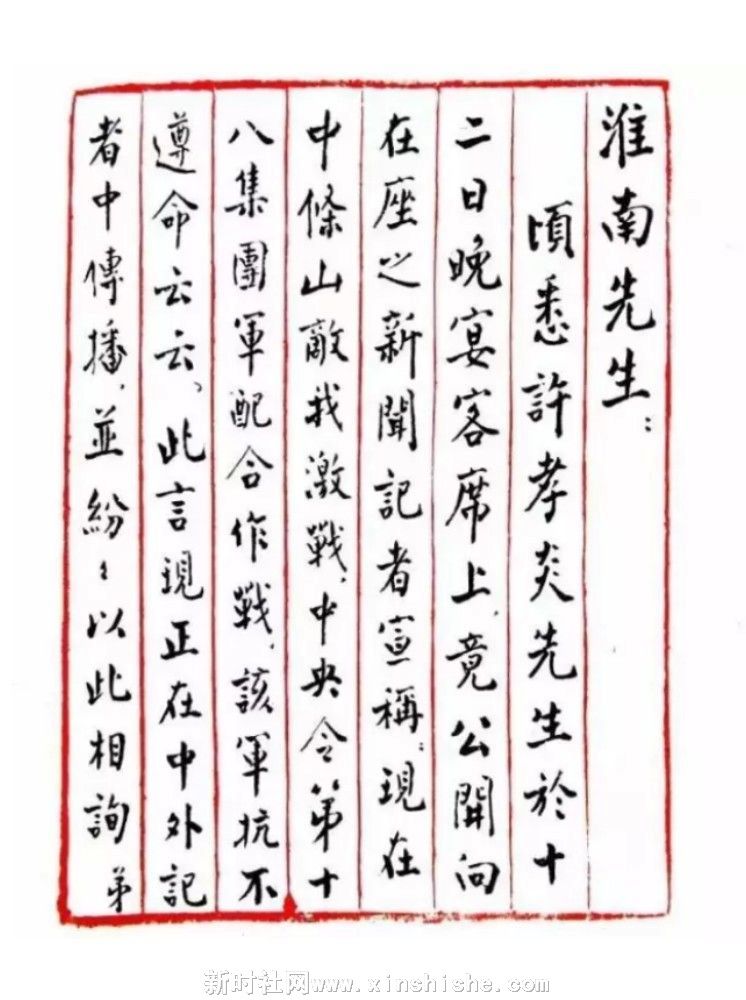 淮南先生：
頃悉許孝炎先生於十
二日晚宴客席上，竟公開向
在座之新聞記者宣稱：現在
中條山敵我激戰，中央令第十
八集團軍配合作戰，該軍抗不
遵命云云、此言現正在中外記
者中傳播，並紛〻以此相詢 弟
新时社网www.xinshishe.com